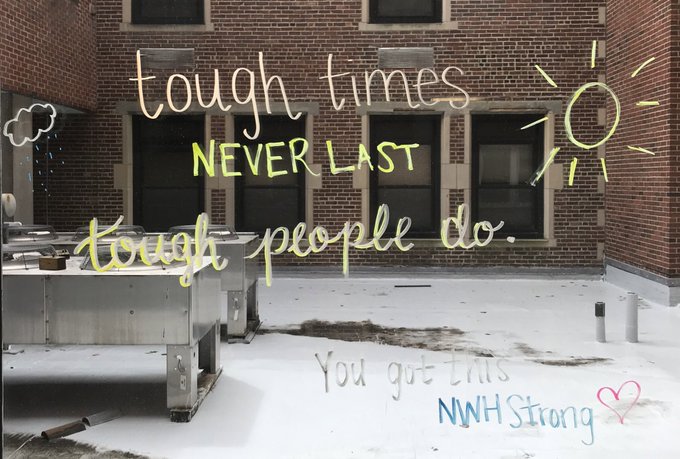 tough times
NEVER LAST
tough people do.
You got this
NWH Strong